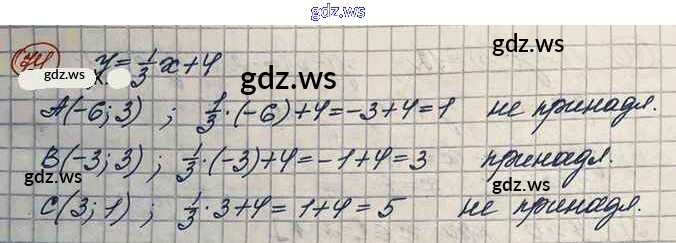 gdz.ws
74 y = 1/3 x + 4
gdz.ws x. gdz.ws
A(-6; 3) ; 1/3 · (-6) + 4 = -3 + 4 = 1 не принадл.
B(-3; 3) ; 1/3 · (-3) + 4 = -1 + 4 = 3 принадл.
gdz.ws gdz.ws
C(3; 1) ; 1/3 · 3 + 4 = 1 + 4 = 5 не принадл.